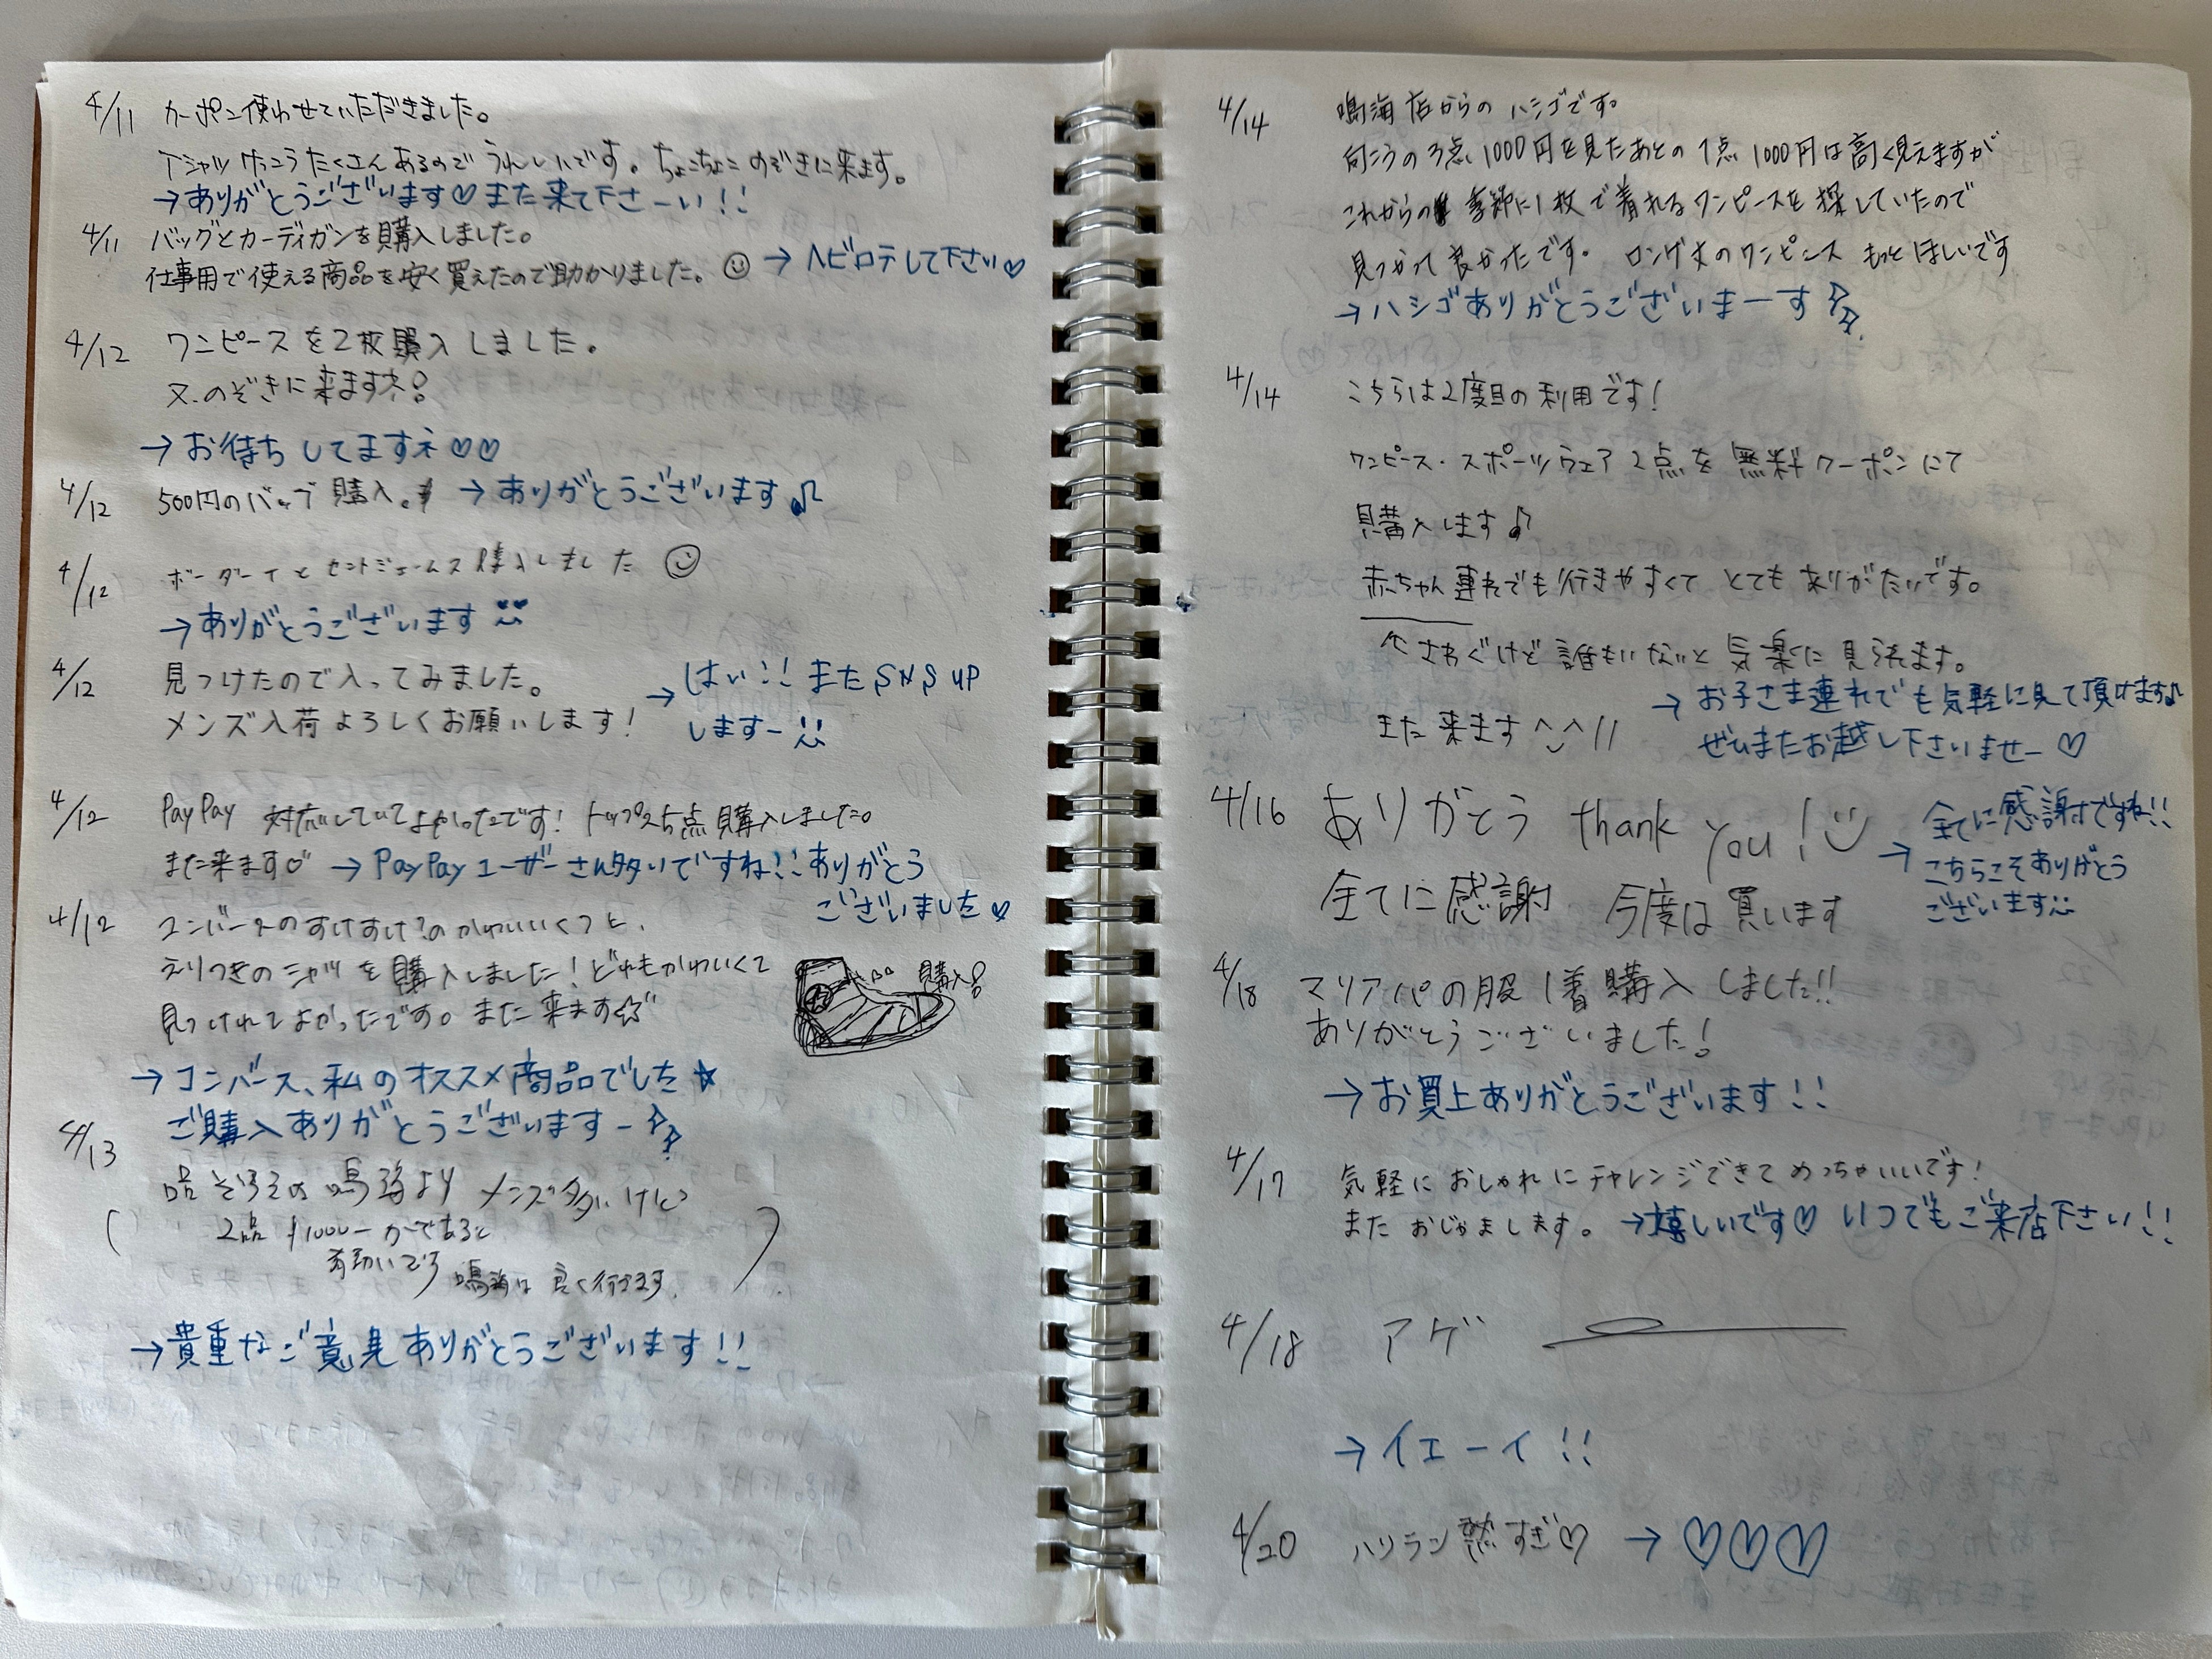 4/11 クーポン使わせていただきました。
Tシャツけっこうたくさんあるのでうれしいです。ちょこちょこのぞきに来ます。
→ありがとうございます♡また来て下さーい!!
4/11 バッグとカーディガンを購入しました。
仕事用で使える商品を安く買えたので助かりました。☺ →ヘビロテして下さい♡
4/12 ワンピースを2枚購入しました。
又のぞきに来ますネ!
→お待ちしてますネ♡♡
4/12 500円のバッグ購入。 →ありがとうございます♫
4/12 ボーダーTとセントジェームス購入しました☺
→ありがとうございます
4/12 見つけたので入ってみました。
メンズ入荷よろしくお願いします!
→はい!!またSNS UP
しますー
4/12 PayPay 対応していてよかったです!トップス5点購入しました。
また来ます♡ →PayPayユーザーさん多いですね!!ありがとう
ございました♡
4/12 コンバースのすけすけ?のかわいいくつと、
えりつきのシャツを購入しました!どれもかわいくて
見つけれてよかったです。また来ます☆
購入!
→コンバース、私のオススメ商品でした★
ご購入ありがとうございますー
4/13 品ぞろえは鳴海よりメンズ多いけど
(2品 ¥1000ーかであると
有効いです 鳴海は良く行きます。)
→貴重なご意見ありがとうございます!!
4/14 鳴海店からのハシゴです。
向こうの3点1000円を見たあとの1点1000円は高く見えますが
これからの季節に1枚で着れるワンピースを探していたので
見つかって良かったです。ロング丈のワンピースもっとほしいです
→ハシゴありがとうございまーす
4/14 こちらは2度目の利用です!
ワンピース・スポーツウェア2点を無料クーポンにて
購入します♪
赤ちゃん連れでも行きやすくてとてもありがたいです。
↑さわぐけど誰もいないと気楽に見られます。
また来ます^_^//
→お子さま連れでも気軽に見て頂けます♪
ぜひまたお越し下さいませー♡
4/16 ありがとう thank you!☺
全てに感謝 今度は買います
→全てに感謝ですね!!
こちらこそありがとう
ございます
4/18 マリアパの服1着購入しました!!
ありがとうございました!
→お買上ありがとうございます!!
4/17 気軽におしゃれにチャレンジできてめっちゃいいです!
またおじゃまします。→嬉しいです♡いつでもご来店下さい!!
4/18 アゲ
→イエーイ!!
4/20 ハリランすぎ♡ →♡♡♡